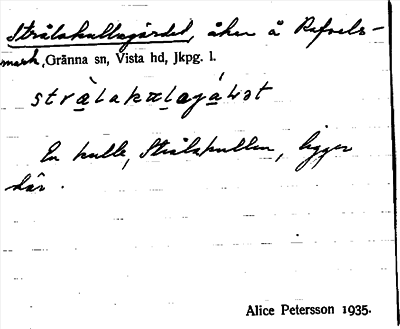 Strålakullagärdet, åker å Rafvels-
mark, Gränna sn, Vista hd, Jkpg. l.
stràlakullagáḷət
En kulle, Strålakullen, ligger
här.
Alice Petersson 1935.